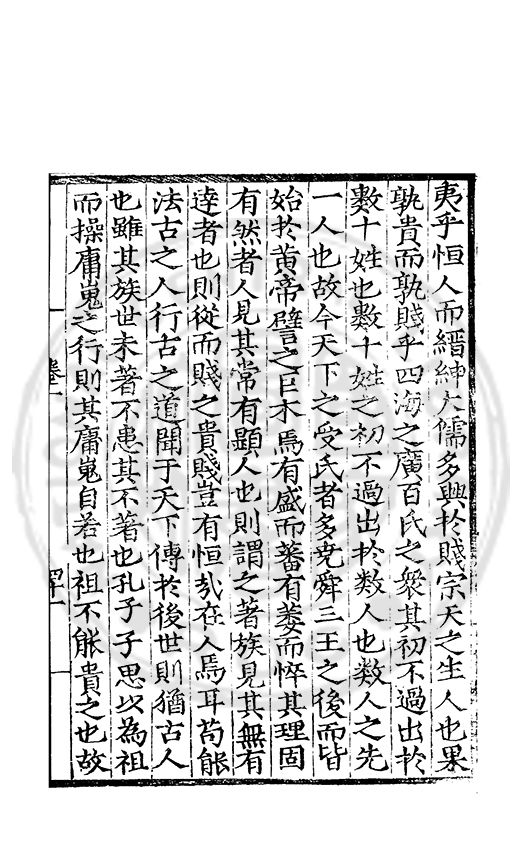 夷乎恒人而縉紳大儒多興於賤宗天之生人也果
孰貴而孰賤乎四海之廣百氏之衆其初不過出於
數十姓也數十姓之初不過出於数人也数人之先
一人也故今天下之受氏者多尭舜三王之後而皆
始於黄帝譬之巨木焉有盛而蕃有萎而悴其理固
有然者人見其常有顯人也則謂之著族見其無有
逹者也則從而賤之貴賤豈有恒㦲在人焉耳苟能
法古之人行古之道聞于天下傳於後世則猶古人
也雖其族世未著不患其不著也孔子子思以為祖
而操庸嵬之行則其庸嵬自若也祖不能貴之也故
卷一
四十一